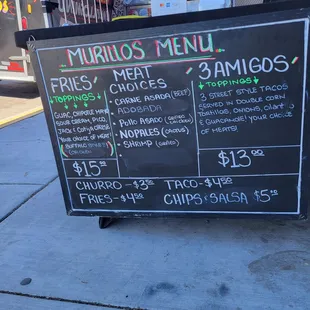 MURILLOS MENU
FRIES
TOPPINGS
GUAC, CHIPOTLE MAYO
SOUR CREAM, PICO,
JACK & COTIJA CHEESE
YOUR CHOICE OF MEAT!
BUFFALO
$15
MEAT
CHOICES
- CARNE ASADA (BEEF)
ADOBADA
- POLLO ASADO
- NOPALES (CACTUS)
- SHRIMP
3 AMIGOS
TOPPINGS
3 STREET STYLE TACOS
SERVED IN DOUBLE CORN
TORTILLAS, ONIONS, CILANTRO
& GUACAMOLE! YOUR CHOICE
OF MEATS!
$13.00
CHURRO - $3.50 TACO - $4.50
FRIES - $4.50 CHIPS & SALSA $5.50